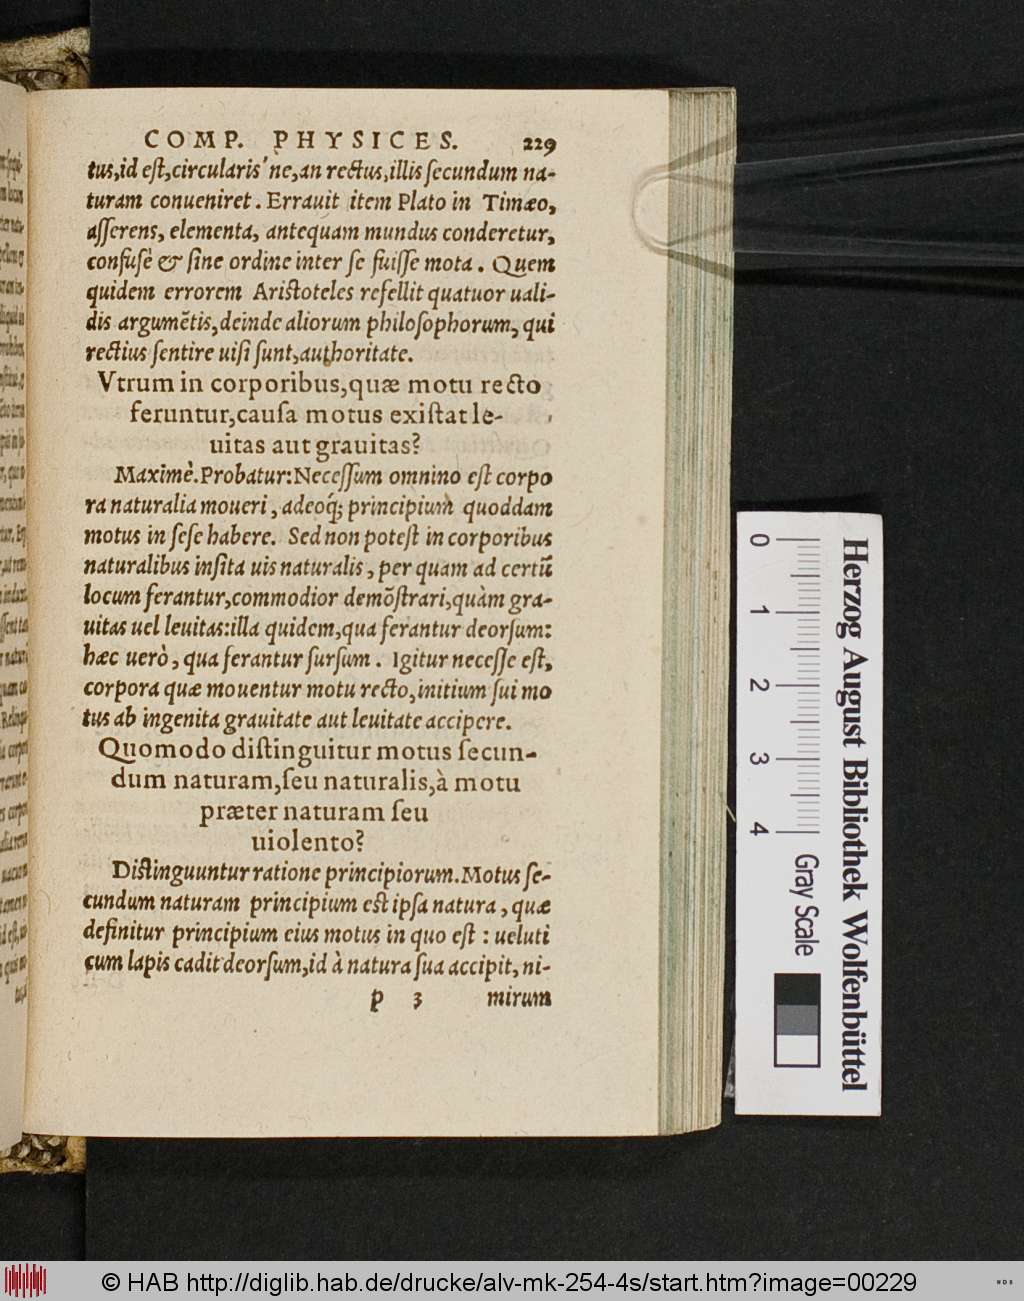 COMP. PHYSICES. 229
tus,id eſt,circularis'ne,an rectus,illis ſecundum na-
turam conueniret. Errauit item Plato in Timæo,
aſſerens, elementa, antequam mundus conderetur,
confuſè & ſine ordine inter ſe fuiſſe mota. Quem
quidem errorem Ariſtoteles refellit quatuor uali-
dis argumētis,deinde aliorum philoſophorum, qui
rectius ſentire uiſi ſunt,authoritate.
Vtrum in corporibus,quæ motu recto
feruntur,cauſa motus exiſtat le-
uitas aut grauitas?
Maximè.Probatur:Neceſſum omnino eſt corpo
ra naturalia moueri, adeoq́; principium quoddam
motus in ſeſe habere. Sed non poteſt in corporibus
naturalibus inſita uis naturalis, per quam ad certũ
locum ferantur,commodior demõſtrari,quàm gra-
uitas uel leuitas:illa quidem,qua ferantur deorſum:
hæc uerò, qua ferantur ſurſum. Igitur neceſſe eſt,
corpora quæ mouentur motu recto,initium ſui mo
tus ab ingenita grauitate aut leuitate accipere.
Quomodo diſtinguitur motus ſecun-
dum naturam,ſeu naturalis,à motu
præter naturam ſeu
uiolento?
Diſtinguuntur ratione principiorum.Motus ſe-
cundum naturam principium eſt ipſa natura, quæ
definitur principium eius motus in quo eſt: ueluti
cum lapis cadit deorſum,id à natura ſua accipit, ni-
p 3 mirum
Herzog August Bibliothek Wolfenbüttel
0 1 2 3 4 Gray Scale
© HAB http://diglib.hab.de/drucke/alv-mk-254-4s/start.htm?image=00229